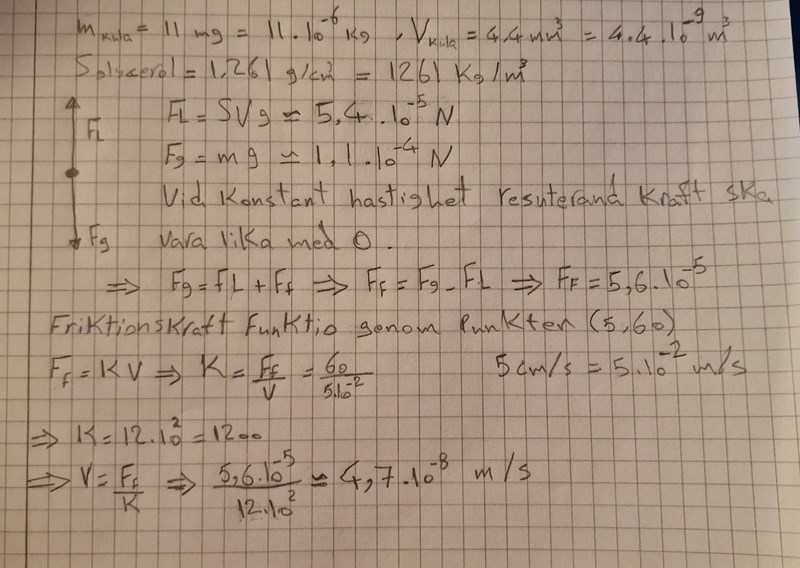 m kula = 11 mg = 11.10^-6 kg , V kula = 4,4 mm^3 = 4.4.10^-9 m^3
S glycerol = 1,261 g/cm^3 = 1261 Kg/m^3
FL = SVg ≈ 5,4.10^-5 N
FL
Fg = mg ≈ 1,1.10^-4 N
Vid Konstant hastighet resuterand Kraft ska
Fg vara lika med 0.
⇒ Fg = FL + Ff ⇒ Ff = Fg - FL ⇒ FF = 5,6.10^-5
Friktionskraft Funktio genom Punkten (5,60)
Ff = KV ⇒ K = Ff/V = 60/5.10^-2 5 cm/s = 5.10^-2 m/s
⇒ K = 12.10^2 = 1200
⇒ V = Ff/K ⇒ 5,6.10^-5/12.10^2 ≈ 4,7.10^-8 m/s